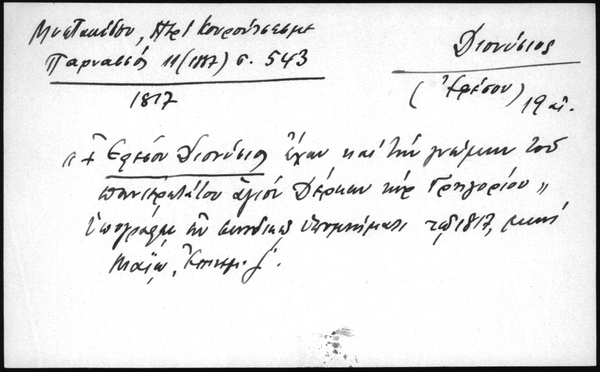 Μυστακίδου, Περί Κουρούτσεσμε
Παρνασσός 11 (1887) σ. 543
1817
Διονύσιος
(Ἐφέσου) 19 αἰ.
"+ Ἐφέσου Διονύσιος ἔχων καὶ τὴν γνώμην τοῦ
πανιερωτάτου ἁγίου Δέρκων κὺρ Γρηγορίου"
Ὑπογράφει ἐν συνοδικῷ ὑπομνήματι τοῦ 1817, μηνὶ
Μαΐῳ,